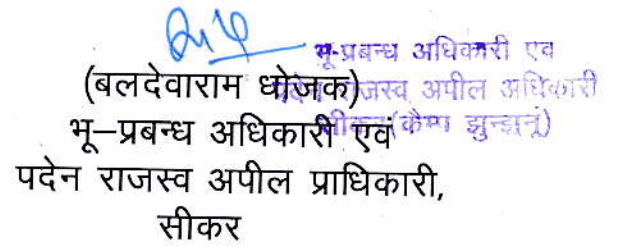 भू-प्रबन्ध अधिकारी एव
पदेन राजस्व अपील अधिकारी
सीकर (कैम्प झुन्झनूं)
(बलदेवाराम धोजक)
भू–प्रबन्ध अधिकारी एवं
पदेन राजस्व अपील प्राधिकारी,
सीकर